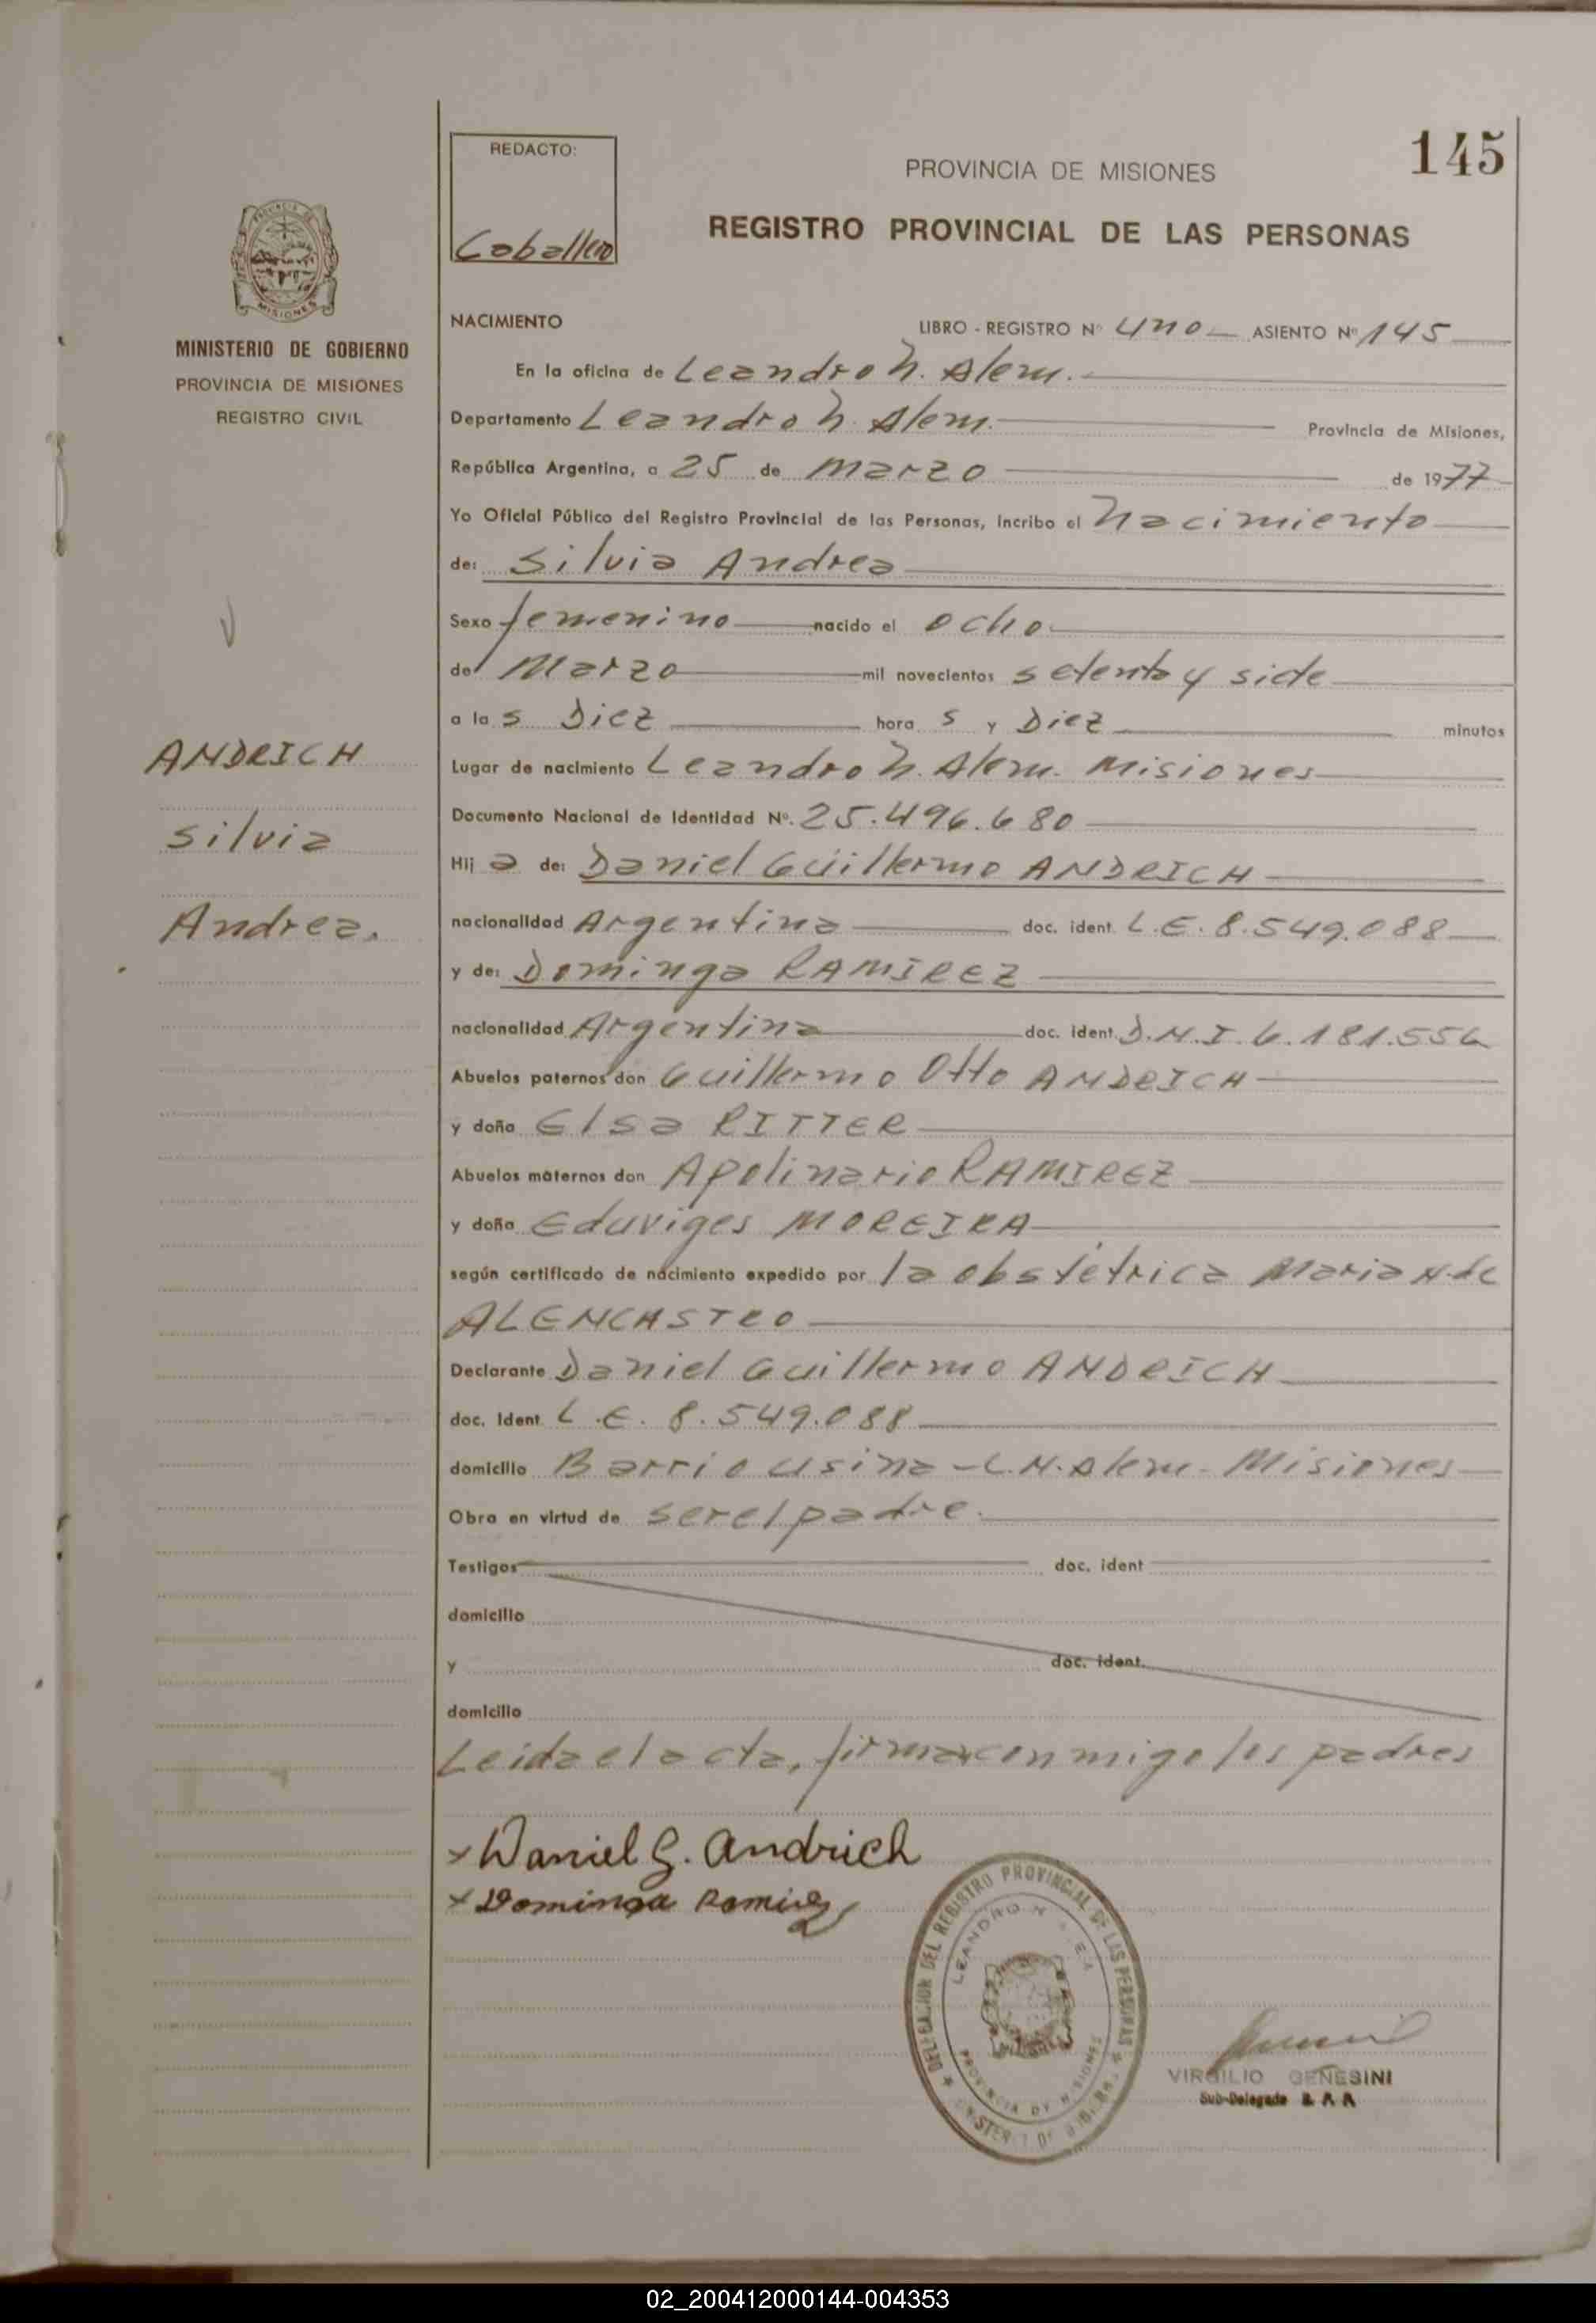 145
REDACTO:
Caballero
PROVINCIA DE MISIONES
REGISTRO PROVINCIAL DE LAS PERSONAS
MISIONES
MINISTERIO DE GOBIERNO
PROVINCIA DE MISIONES
REGISTRO CIVIL
ANDRICH
Silvia
Andrea.
NACIMIENTO LIBRO - REGISTRO Nº uno ASIENTO Nº 145
En la oficina de Leandro N. Alem.
Departamento Leandro N. Alem. Provincia de Misiones,
República Argentina, a 25 de Marzo de 1977
Yo Oficial Público del Registro Provincial de las Personas, incribo el Nacimiento
de: Silvia Andrea
Sexo femenino nacido el ocho
de Marzo mil novecientos setenta y siete
a las Diez horas y Diez minutos
Lugar de nacimiento Leandro N. Alem. Misiones
Documento Nacional de Identidad Nº. 25.496.680
Hija de: Daniel Guillermo ANDRICH
nacionalidad Argentina doc. ident. L.E. 8.549.088
y de: Dominga RAMIREZ
nacionalidad Argentina doc. ident. D.N.I. 6.181.556
Abuelos paternos don Guillermo Otto ANDRICH
y doña Elsa RITTER
Abuelos maternos don Apolinario RAMIREZ
y doña Eduviges MOREIRA
según certificado de nacimiento expedido por la obstétrica Maria N. de
ALENCASTRO
Declarante Daniel Guillermo ANDRICH
doc. ident. L.E. 8.549.088
domicilio Barrio usina - L.N. Alem - Misiones
Obra en virtud de ser el padre.
Testigos doc. ident
domicilio
y doc. ident.
domicilio
Leida el acta, firman conmigo los padres
x Daniel G. Andrich
x Dominga Ramirez
DELEGACION DEL REGISTRO PROVINCIAL DE LAS PERSONAS
LEANDRO N. ALEM
PROVINCIA DE MISIONES
VIRGILIO GENESINI
Sub-Delegado
02_200412000144-004353